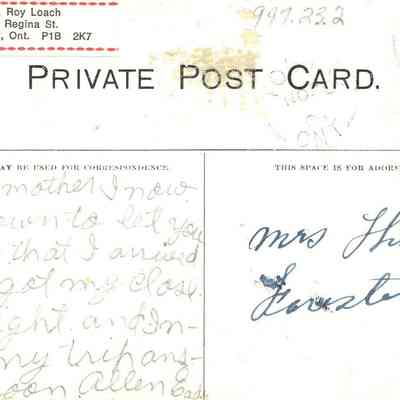 Roy Loach
Regina St.
, Ont. P1B 2K7
997.23.2
PRIVATE POST CARD.
ONT
AY BE USED FOR CORRESPONDENCE.
THIS SPACE IS FOR ADDR
mother I now
down to let you
that I arrived
got my close
ight and In-
my trip ans-
oon Allen
Mrs Th
Foreste